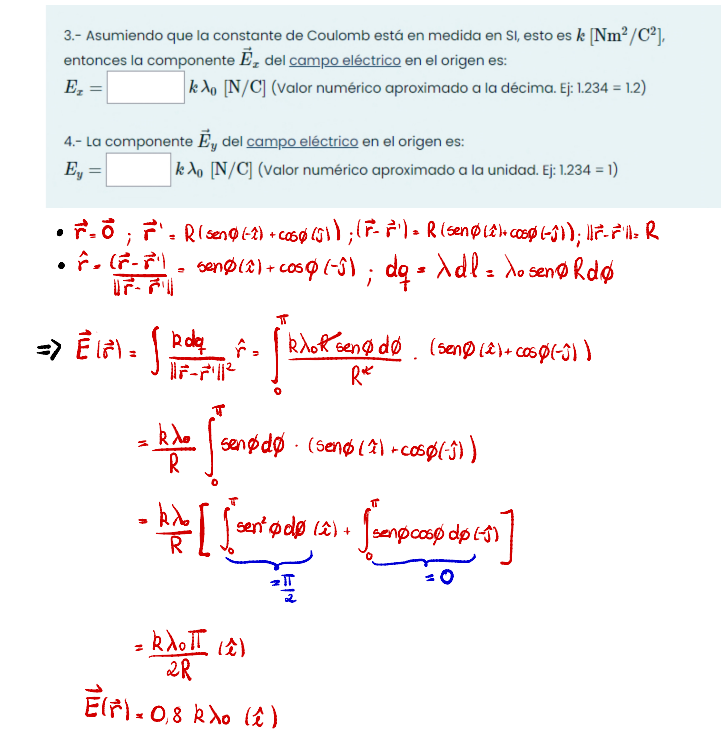 3.- Asumiendo que la constante de Coulomb está en medida en SI, esto es k [Nm²/C²],
entonces la componente E⃗ₓ del campo eléctrico en el origen es:
Eₓ = k λ₀ [N/C] (Valor numérico aproximado a la décima. Ej: 1.234 = 1.2)
4.- La componente E⃗ᵧ del campo eléctrico en el origen es:
Eᵧ = k λ₀ [N/C] (Valor numérico aproximado a la unidad. Ej: 1.234 = 1)
• r⃗ = 0⃗ ; r⃗' = R(senø(-î) + cosø(ĵ)) ; (r⃗ - r⃗') = R(senø(î) + cosø(-ĵ)) ; ||r⃗ - r⃗'|| = R
• r̂ = (r⃗ - r⃗')/||r⃗ - r⃗'|| = senø(î) + cosø(-ĵ) ; dq = λdl = λ₀ senø Rdø
=> E⃗(r⃗) = ∫ kdq/||r⃗ - r⃗'||² r̂ = ∫₀^π kλ₀R senø dø/R² · (senø(î) + cosø(-ĵ))
= kλ₀/R ∫₀^π senø dø · (senø(î) + cosø(-ĵ))
= kλ₀/R [ ∫₀^π sen²ø dø (î) + ∫₀^π senø cosø dø (-ĵ) ]
= π/2 = 0
= kλ₀π/2R (î)
E⃗(r⃗) = 0,8 kλ₀ (î)